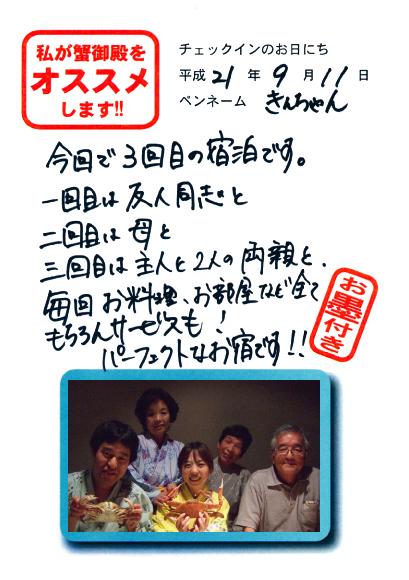 私が蟹御殿を
オススメ
します!!
チェックインのお日にち
平成 21 年 9 月 11 日
ペンネーム きんちゃん
今回で3回目の宿泊です。
一回目は友人同志と
二回目は母と
三回目は主人と2人の両親と、
毎回お料理、お部屋など全て
もちろんサービスも!
パーフェクトなお宿です!!
お墨付き